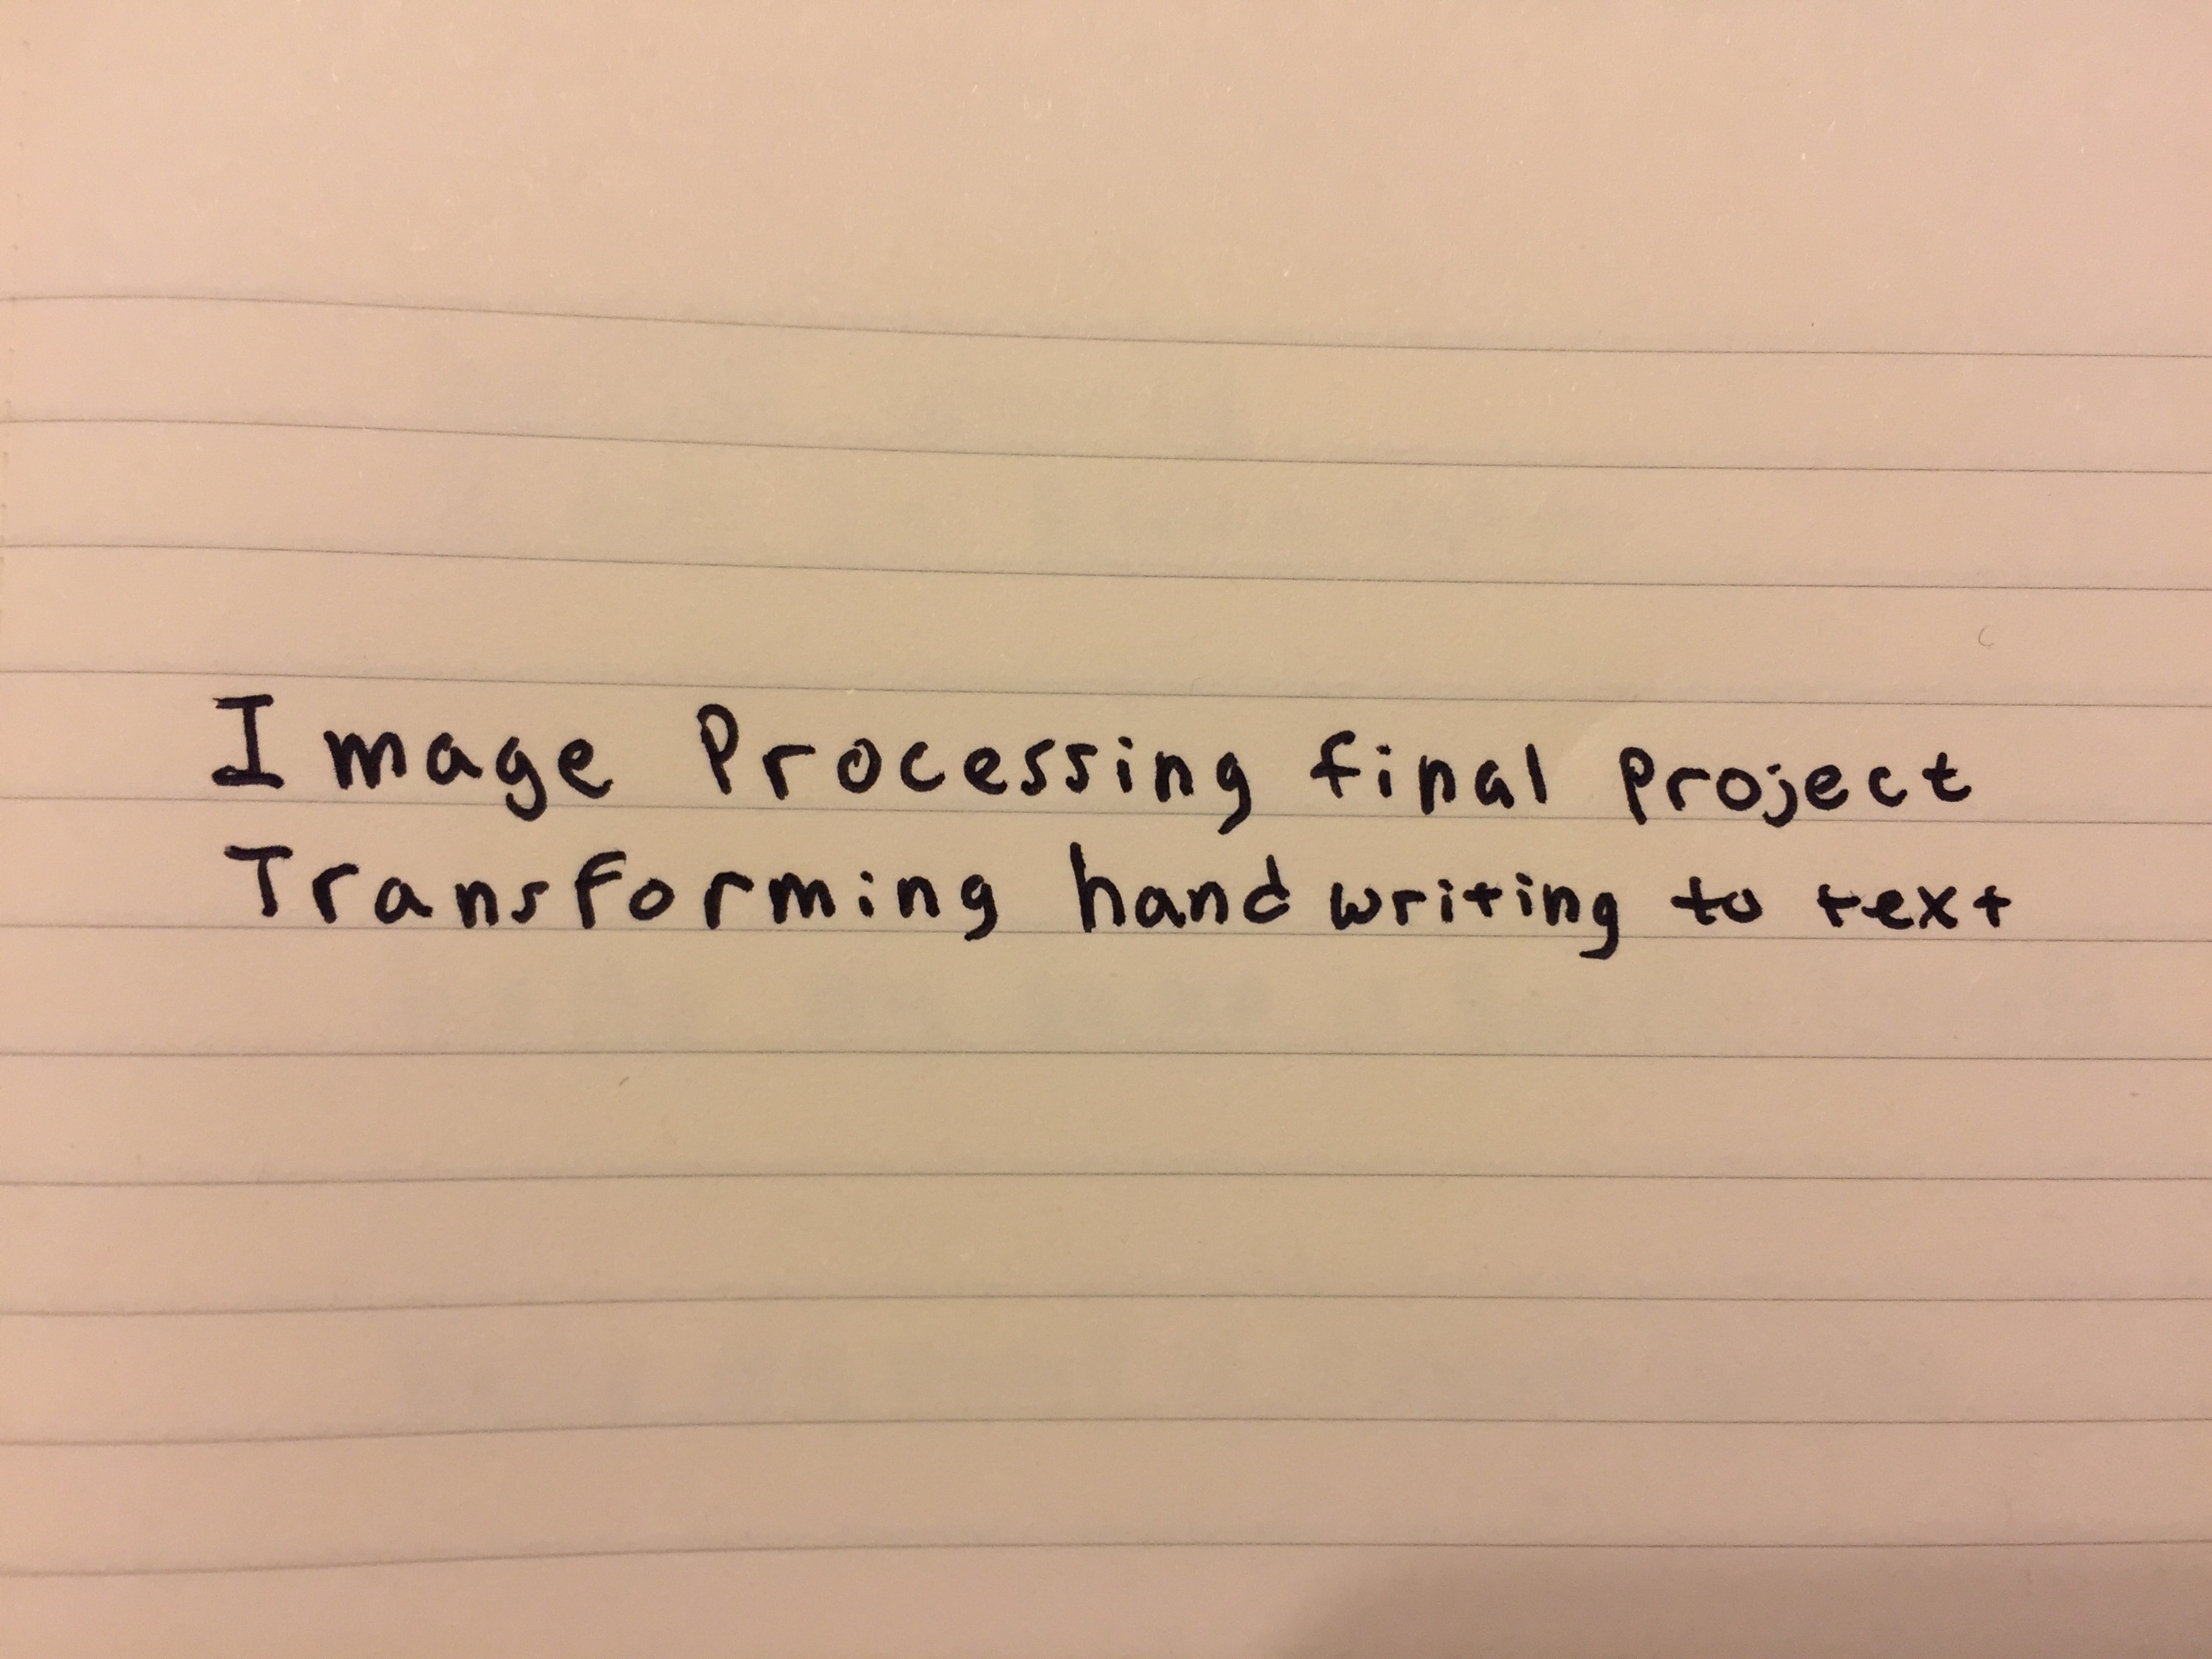 Image Processing final project
Transforming handwriting to text